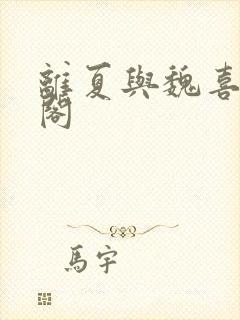 離夏與魏喜
閣
馬宇